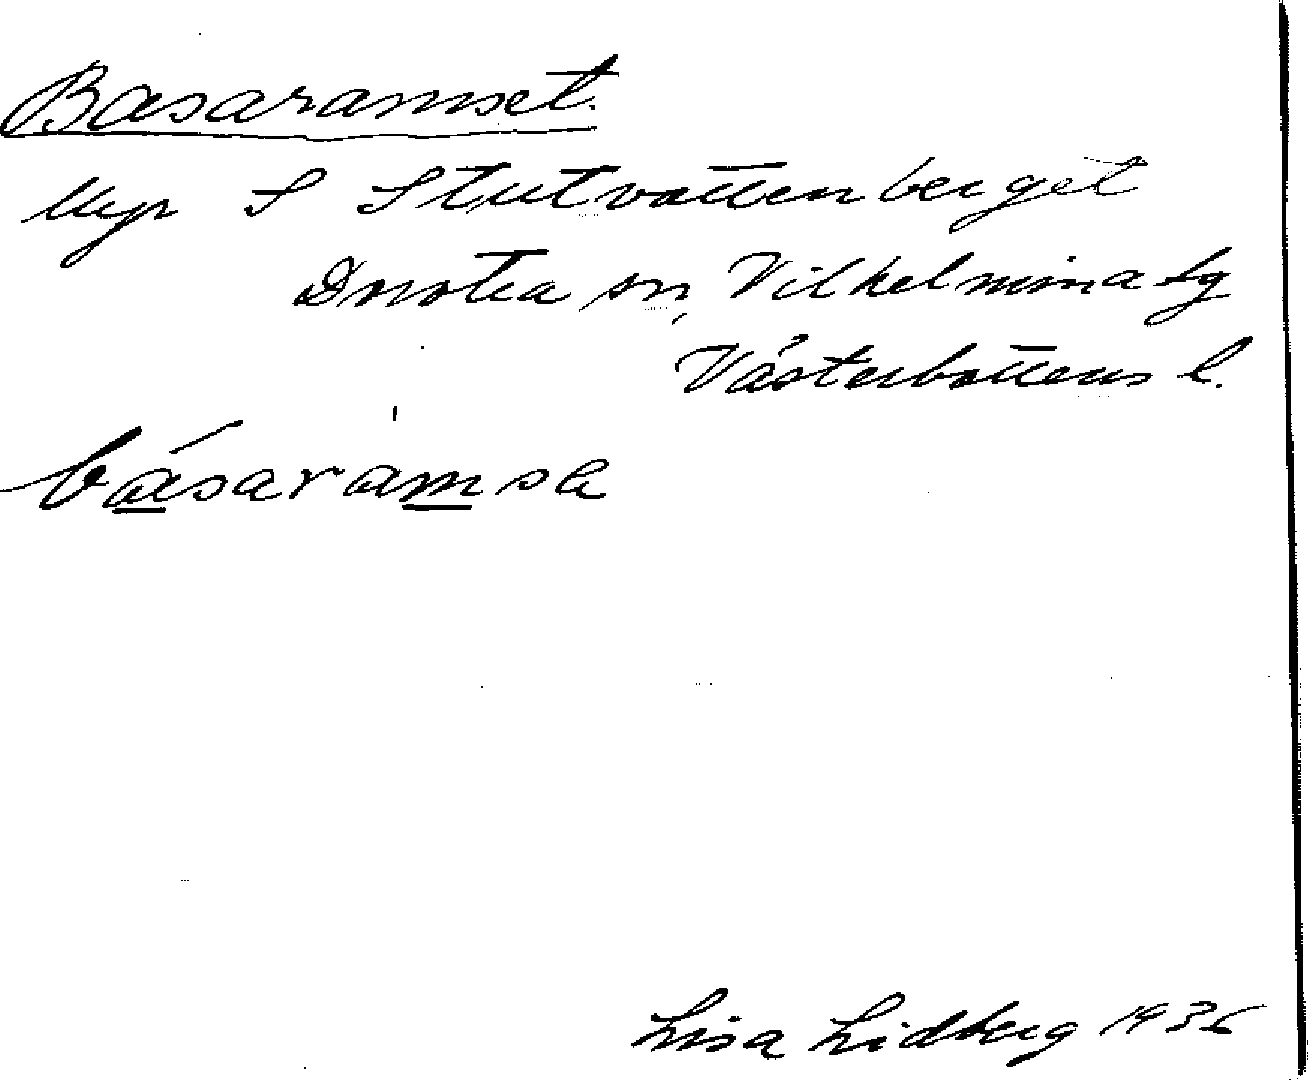 Basaramset.
Myr S Stutvattenberget
Dorotea sn, Vilhelmina tg
Västerbottens l.
básaramsa
Lisa Lidberg 1936